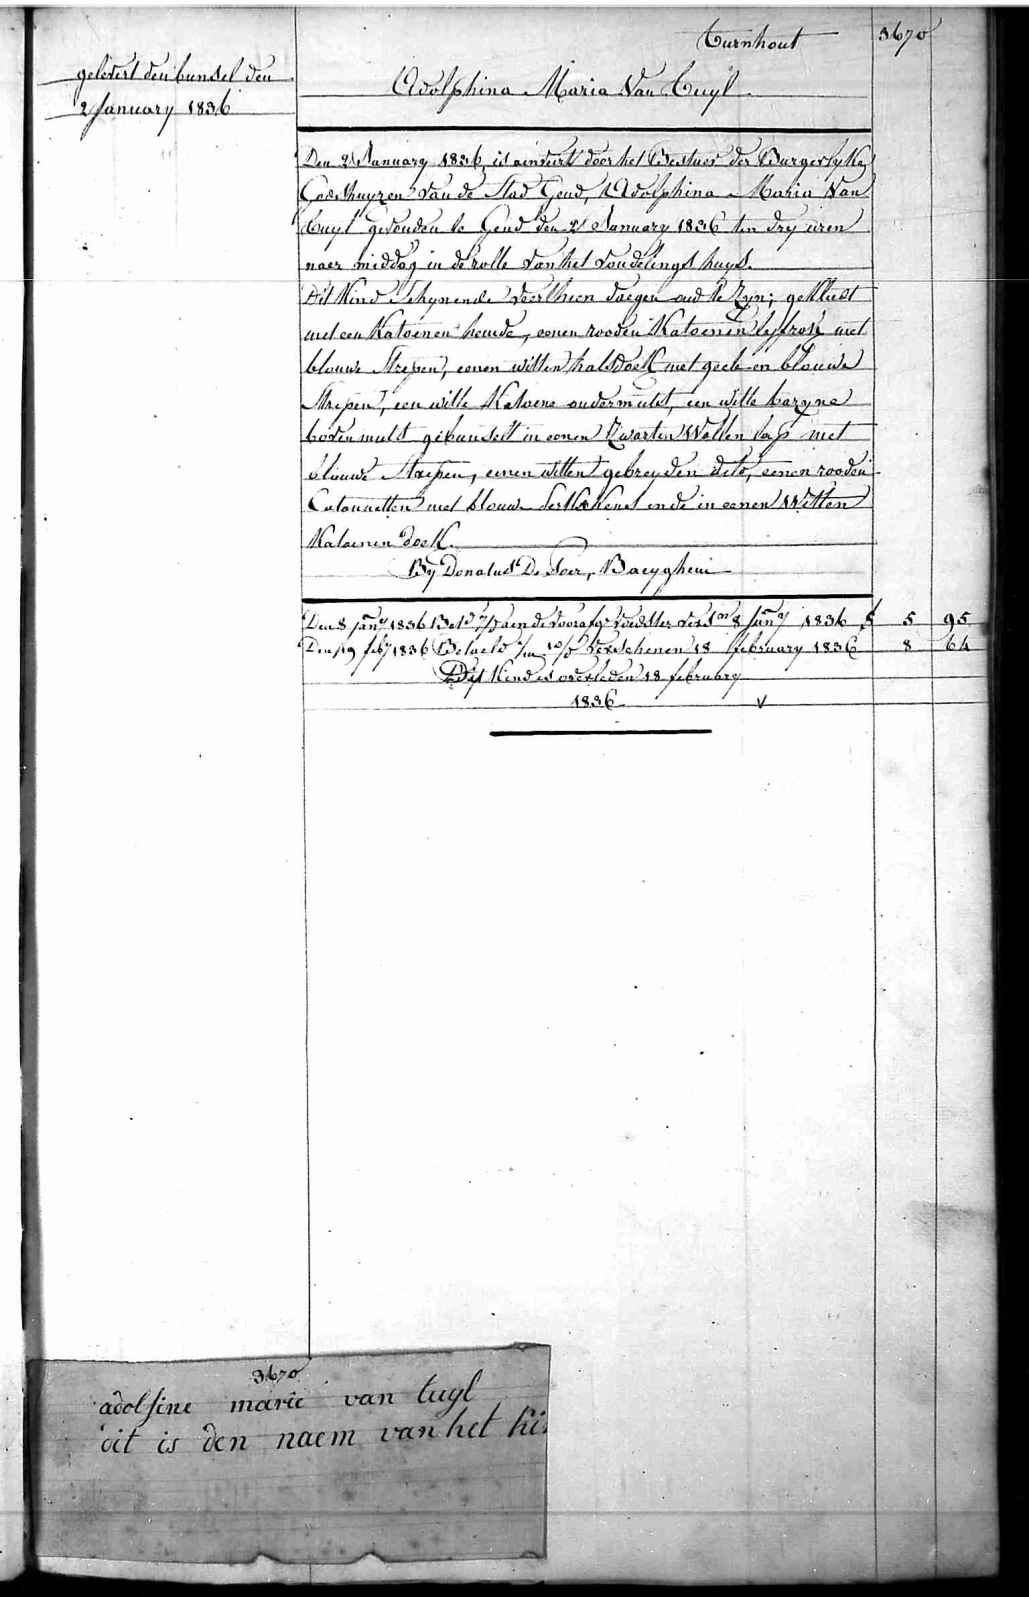 Turnhout 3670
gelevert den bunsel den
2 January 1836
Adolphina Maria Van Tuyl
Den 2 January 1836, is ainveirt door het Bestuer der Burgerlyke
Godshuyzen van de Stad Gend, Adolphina Maria Van
Tuyl gevonden te Gend den 2 January 1836 ten dry uren
naer middag in de rolle van het vondelings huys.
Dit Kind schynende veerthien daegen oud te Zyn; gekleedt
met een Katoenen hemde, eenen rooden Katoenen lyfrok met
blouwe strepen, eenen witten halsdoek met geele en blouwe
strepen, een witte Katoene ondermuts, een witte bazyne
bovenmuts gebunselt in eenen Zwarten Wollen lap met
blouwe strepen, eenen witten gebreyden dito, eenen rooden
Catounetten met blouwe ende in eenen Witten
Katoenen doek.
By Donatus De Loer, Baeyghem
Den 8 jany 1836 Bet voedster 8 jany 1836 5 95
Den 19 feby 1836 Betaeld verschenen 18 february 1836 8 64
Dit Kind is overleden 18 february
1836 v
3670
adolfine marie van tuyl
dit is den naem van het kin